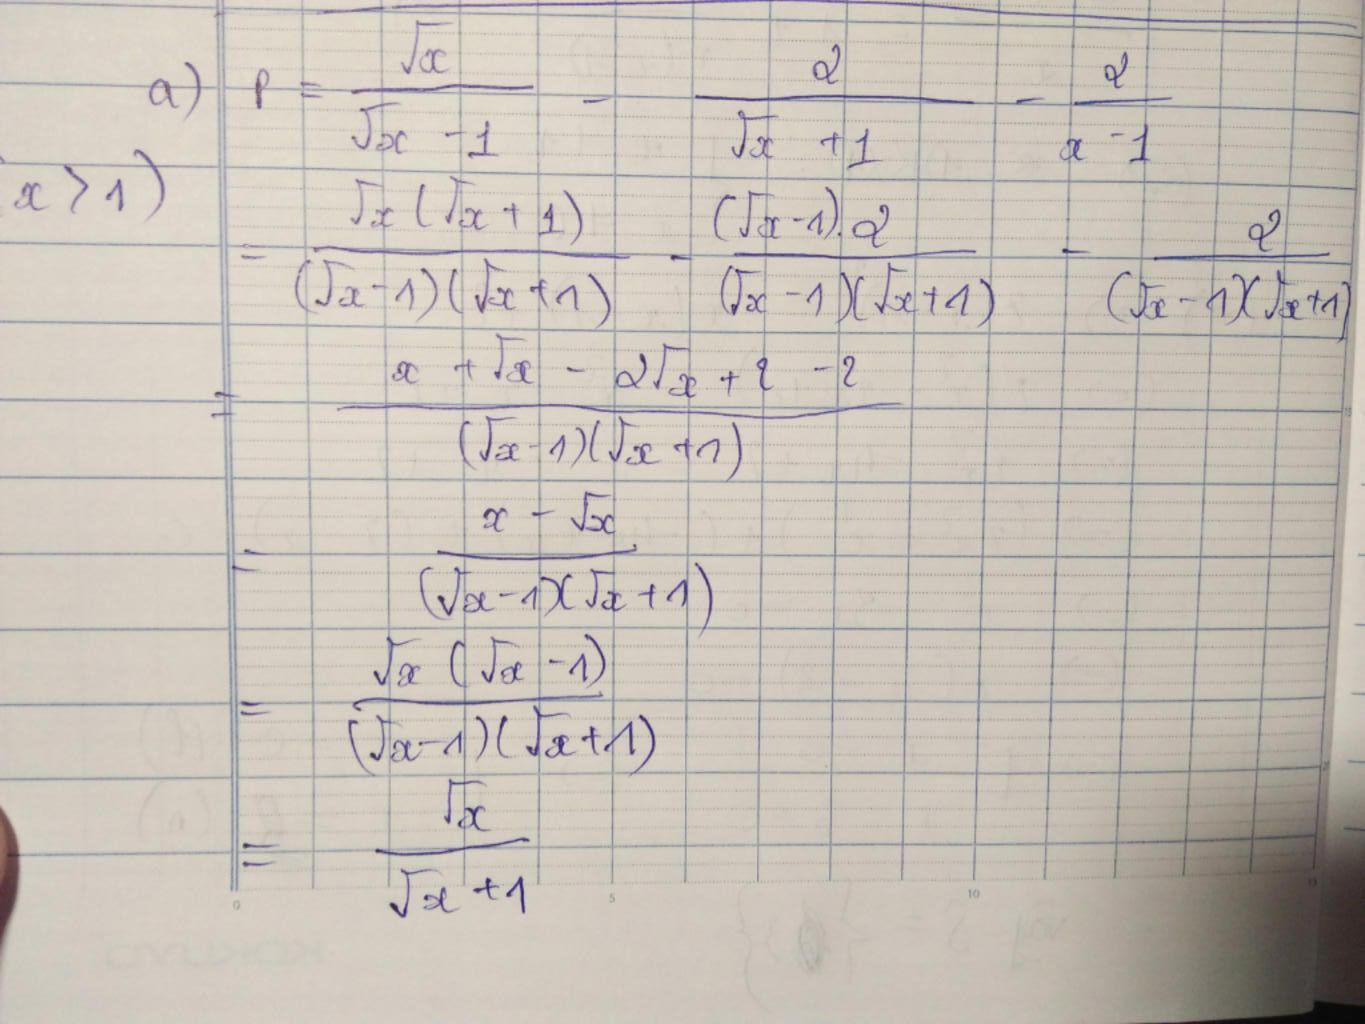 a) P = \frac{\sqrt{x}}{\sqrt{x} - 1} - \frac{2}{\sqrt{x} + 1} - \frac{2}{x - 1}
(x > 1)
= \frac{\sqrt{x}(\sqrt{x} + 1)}{(\sqrt{x} - 1)(\sqrt{x} + 1)} - \frac{(\sqrt{x} - 1).2}{(\sqrt{x} - 1)(\sqrt{x} + 1)} - \frac{2}{(\sqrt{x} - 1)(\sqrt{x} + 1)}
= \frac{x + \sqrt{x} - 2\sqrt{x} + 2 - 2}{(\sqrt{x} - 1)(\sqrt{x} + 1)}
= \frac{x - \sqrt{x}}{(\sqrt{x} - 1)(\sqrt{x} + 1)}
= \frac{\sqrt{x}(\sqrt{x} - 1)}{(\sqrt{x} - 1)(\sqrt{x} + 1)}
= \frac{\sqrt{x}}{\sqrt{x} + 1}
0 5 10